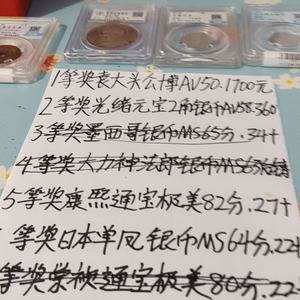 1等奖袁大头公博AU50.1700元
2等奖光绪元宝2角银币AU58.360
3等奖墨西哥银币MS65分.34十
4等奖大力神法郎银币MS65
5等奖康熙通宝极美82分.27十
等奖日本单凤银币MS64分.22十
等奖崇祯通宝极美80分.22